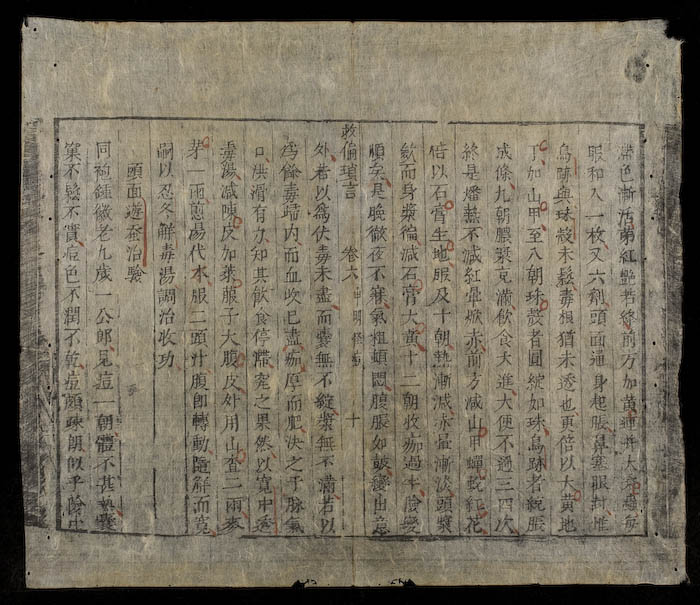 色漸活弟紅艷若終前方加黃連并大桑蟲每
服和入一枚又六劑頭面通身起脹鼻塞眼封惟
烏跡與珠殼未鬆毒根猶未透也更倍以大黃地
丁加山甲至八朝珠殼者圓綻如珠烏跡者統脹
成條九朝膿漿克滿飲食大進大便不過三四次
終是燔蒸不減紅暈焮赤前方減山甲蟬蛻紅花
倍以石膏生地服及十朝熱漸減赤暈漸淡頭漿
斂而身漿徧減石膏大黃十二朝收痂過半險變
順矣是晚徹夜不寐氣粗頓悶腹脹如鼓變出意
救偏瑣言 卷六 申明怪痘 十
外者以為伏毒未盡而囊無不綻漿無不滿若以
為餘毒壅內而血收已盡痂厚而肥決之于脉氣
口洪滑有力知其飲食停滯究之果然以寬中透
毒湯減陳皮加萊菔子大腹皮外用山查二兩麥
芽一兩煎湯代水服二頭汁腹卽轉動隨解而寬
嗣以忍冬解毒湯調治收功
頭面遊蚕治驗
同袍鍾徽老九歲一公郎見痘一朝體不甚熱囊
窠不鬆不實痘色不潤不乾痘頭珠朗似乎險中